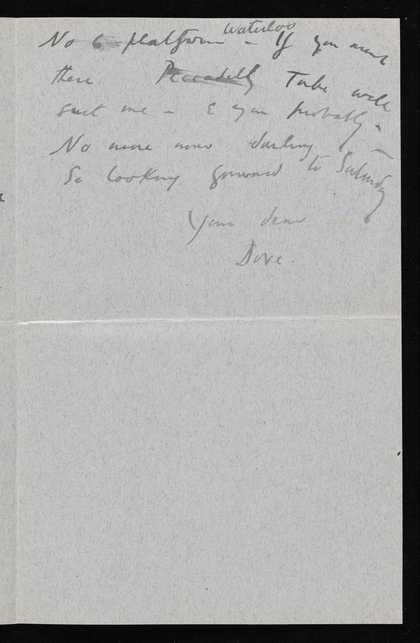 No 6 platform Waterloo – If you
there Piccadilly Tube will
suit me – & you probably –
No more now darling –
So looking forward to Saturday
Your
Dove.